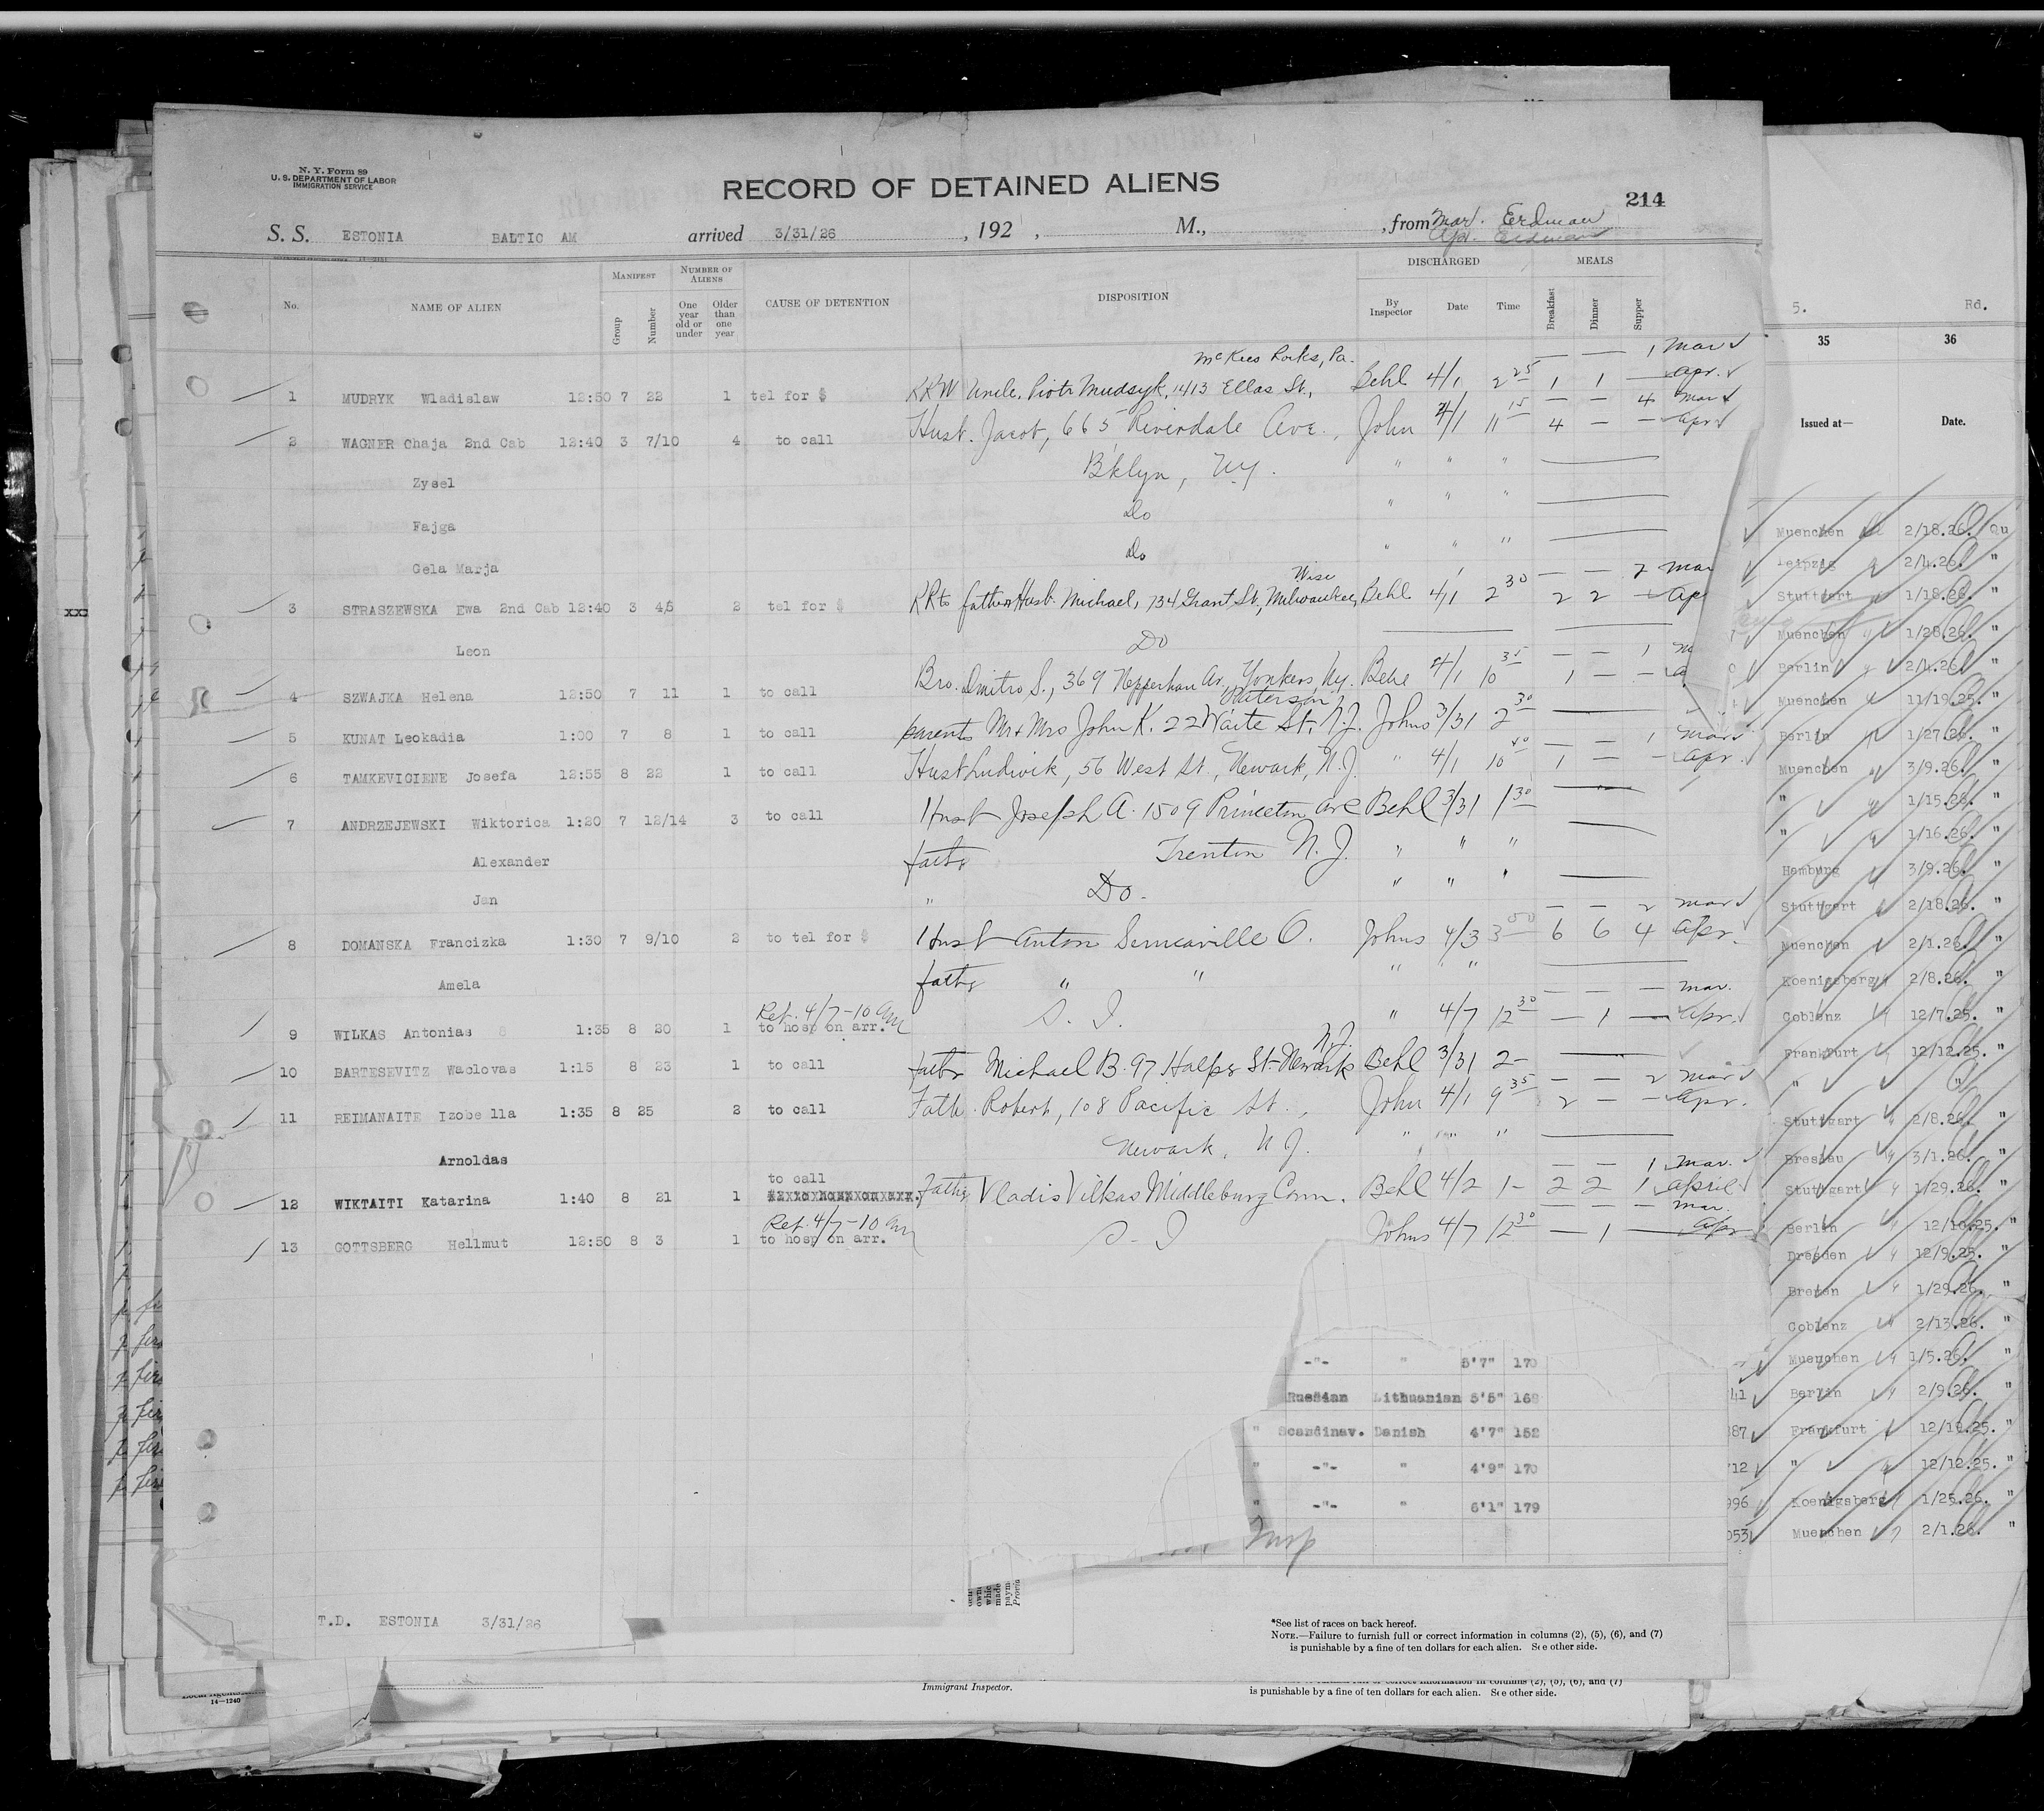 N. Y. Form 89
U. S. DEPARTMENT OF LABOR
IMMIGRATION SERVICE
RECORD OF DETAINED ALIENS
214
S. S. ESTONIA BALTIC AM arrived 3/31/26, 192 , M., , from Mar. Erdman
Apr. Erdman
No. NAME OF ALIEN MANIFEST Group Number NUMBER OF ALIENS One year old or under Older than one year CAUSE OF DETENTION DISPOSITION DISCHARGED By Inspector Date Time MEALS Breakfast Dinner Supper
McKees Rocks, Pa. — — 1 Mar
1 MUDRYK Wladislaw 12:50 7 22 1 tel for $ RRW Uncle, Piotr Mudryk, 1413 Ellas St., Behl 4/1 2 25 1 1 — Apr.
— — 4 Mar
2 WAGNER Chaja 2nd Cab 12:40 3 7/10 4 to call Husb. Jacob, 665 Riverdale Ave., John 4/1 11 15 4 — — Apr
Zysel B'klyn, NY. " " "
Fajga Do " " "
Gela Marja Do " " "
Wisc — — 2 Mar
3 STRASZEWSKA Ewa 2nd Cab 12:40 3 4,5 2 tel for $ RR to father Husb. Michael, 734 Grant St, Milwaukee, Behl 4/1 2 30 2 2 — Ap
Leon Do
— — 1 M
4 SZWAJKA Helena 12:50 7 11 1 to call Bro. Dmitro S., 369 Nepperhan Av, Yonkers, Ny. Behl 4/1 10 35 1 — — A
Paterson
5 KUNAT Leokadia 1:00 7 8 1 to call parents Mr & Mrs John K. 22 Waite St. N.J. Johns 3/31 2 30
— — 1 Mar
6 TAMKEVICIENE Josefa 12:55 8 22 1 to call Husb Ludwik, 56 West St., Newark, N.J. " 4/1 10 50 1 — — Apr
7 ANDRZEJEWSKI Wiktorica 1:20 7 12/14 3 to call Husb Joseph A. 1509 Princeton Ave Behl 3/31 1 30
Alexander father Trenton N.J. " " "
Jan " Do. " " "
— — 2 Mar
8 DOMANSKA Francizka 1:30 7 9/10 2 to tel for $ Husb Anton O. Johns 4/3 3 50 6 6 4 Apr.
Amela father " " " " "
Ret. 4/7-10 am — — — Mar.
9 WILKAS Antonias 8 1:35 8 20 1 to hosp on arr. S. I. " 4/7 12 30 — 1 — Apr.
N.J.
10 BARTESEVITZ Waclovas 1:15 8 23 1 to call father Michael B. 97 St. Newark Behl 3/31 2 —
— — 2 Mar
11 REIMANAITE Izobe lla 1:35 8 25 2 to call Fath. Robert, 108 Pacific St., John 4/1 9 35 2 — — Apr.
Arnoldas Newark, N J. " " "
to call — — 1 Mar.
12 WIKTAITI Katarina 1:40 8 21 1 Father Vladis Vilkas Middleburg Conn. Behl 4/2 1 — 2 2 1 April
Ret. 4/7-10 am — — — Mar.
13 GOTTSBERG Hellmut 12:50 8 3 1 to hosp on arr. S. I Johns 4/7 12 30 — 1 — Apr
T.D. ESTONIA 3/31/26
-"- " 5'7" 170
Russian Lithuanian 5'5" 168
" Scandinav. Danish 4'7" 152
" -"- " 4'9" 170
" -"- " 6'1" 179
Insp
*See list of races on back hereof.
NOTE.—Failure to furnish full or correct information in columns (2), (5), (6), and (7)
is punishable by a fine of ten dollars for each alien. See other side.
Immigrant Inspector.
is punishable by a fine of ten dollars for each alien. See other side.
14—1240
xx:
5. Rd.
35 36
Issued at— Date.
Muenchen 2/18.26. Qu
Leipzig 2/4.26. "
Stuttgart 1/18.26. "
Muenchen 1/28.26. "
Berlin 2/4.26. "
Muenchen 11/19.25. "
Berlin 1/27.26. "
Muenchen 3/9.26. "
" 1/15.26. "
" 1/16.26. "
Hamburg 3/9.26. "
Stuttgart 2/18.26. "
Muenchen 2/1.26. "
Koenigsberg 2/8.26. "
Coblenz 12/7.25. "
Frankfurt 12/12.25. "
" " "
Stuttgart 2/8.26. "
Breslau 3/1.26. "
Stuttgart 1/29.26. "
Berlin 12/10.25. "
Dresden 12/9.25. "
Bremen 1/29.26. "
Coblenz 2/13.26. "
Muenchen 1/5.26. "
41 Berlin 2/9.26. "
87 Frankfurt 12/10.25. "
712 " 12/12.25. "
996 Koenigsberg 1/25.26. "
053 Muenchen 2/1.26. "